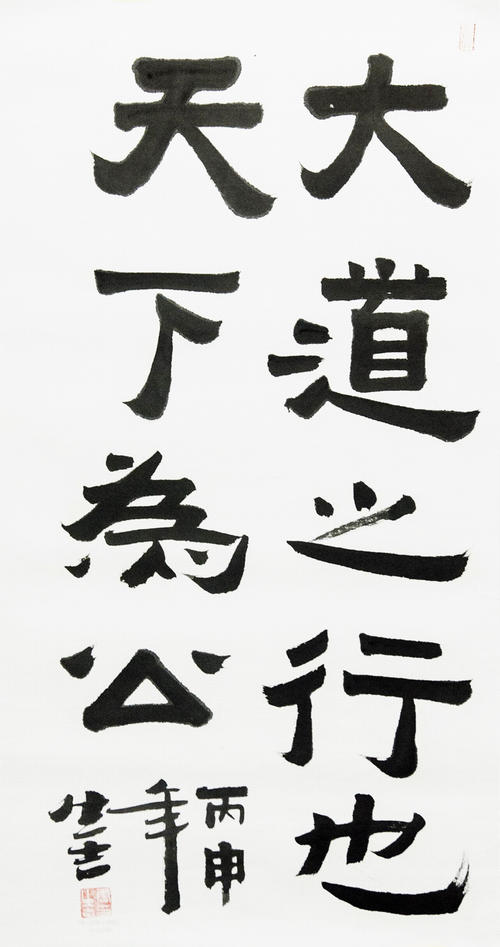 大道之行也
天下為公
丙申
年